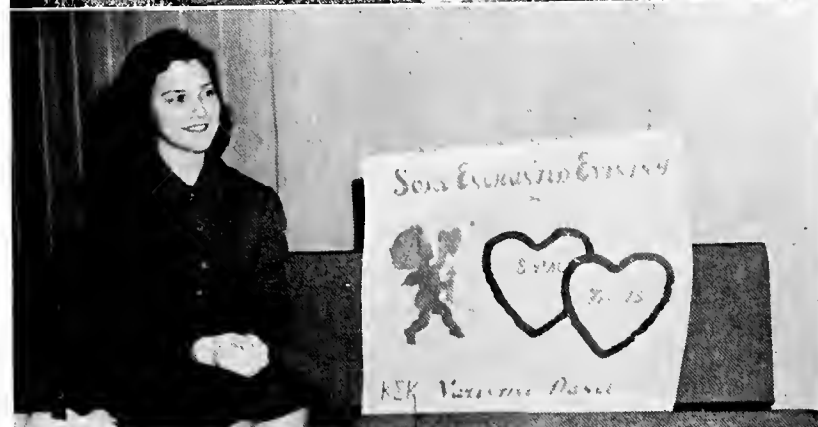 Some Enchanted Evening
8
KΣK Valentine Dance